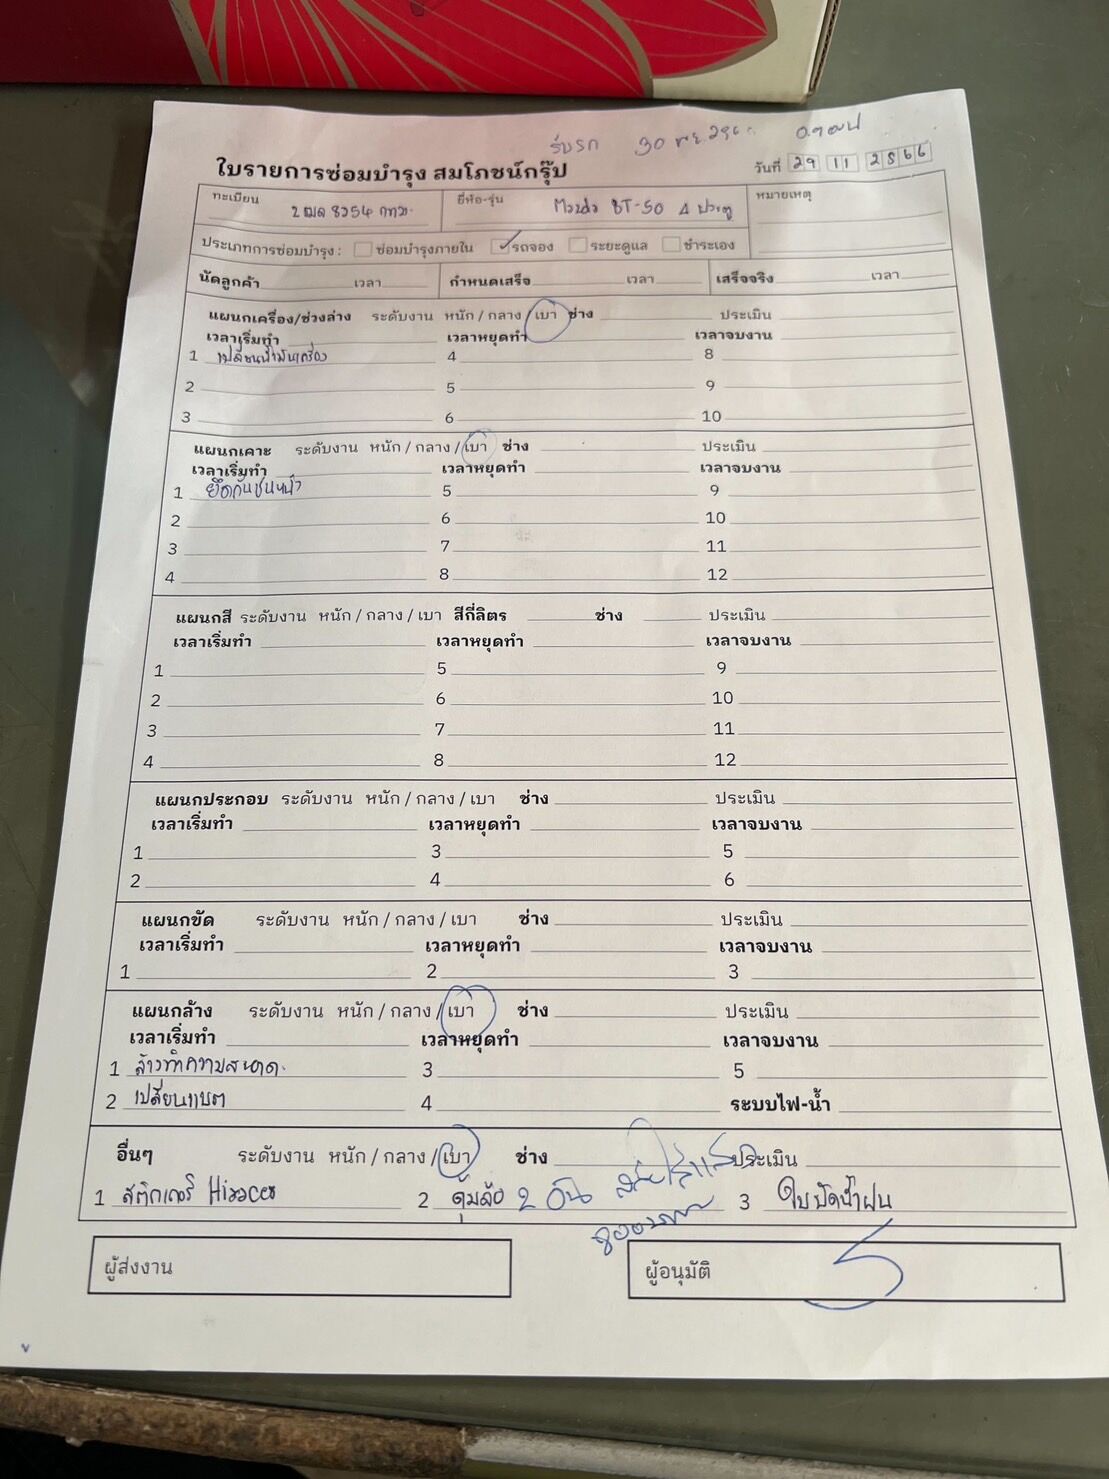 รับรถ 30 พ.ย. 256
ใบรายการซ่อมบำรุง สมโภชน์กรุ๊ป วันที่ 29 11 2566
ทะเบียน 2ฒด 8354 กทม. ยี่ห้อ-รุ่น Mazda BT-50 4 ประตู หมายเหตุ
ประเภทการซ่อมบำรุง : ซ่อมบำรุงภายใน ✓ รถจอง ระยะดูแล ชำระเอง
นัดลูกค้า เวลา กำหนดเสร็จ เวลา เสร็จจริง เวลา
แผนกเครื่อง/ช่วงล่าง ระดับงาน หนัก / กลาง / เบา ช่าง ประเมิน
เวลาเริ่มทำ เวลาหยุดทำ เวลาจบงาน
1 เปลี่ยนน้ำมันเครื่อง 4 8
2 5 9
3 6 10
แผนกเคาะ ระดับงาน หนัก / กลาง / เบา ช่าง ประเมิน
เวลาเริ่มทำ เวลาหยุดทำ เวลาจบงาน
1 ยึดกันชนหน้า 5 9
2 6 10
3 7 11
4 8 12
แผนกสี ระดับงาน หนัก / กลาง / เบา สีกี่ลิตร ช่าง ประเมิน
เวลาเริ่มทำ เวลาหยุดทำ เวลาจบงาน
1 5 9
2 6 10
3 7 11
4 8 12
แผนกประกอบ ระดับงาน หนัก / กลาง / เบา ช่าง ประเมิน
เวลาเริ่มทำ เวลาหยุดทำ เวลาจบงาน
1 3 5
2 4 6
แผนกขัด ระดับงาน หนัก / กลาง / เบา ช่าง ประเมิน
เวลาเริ่มทำ เวลาหยุดทำ เวลาจบงาน
1 2 3
แผนกล้าง ระดับงาน หนัก / กลาง / เบา ช่าง ประเมิน
เวลาเริ่มทำ เวลาหยุดทำ เวลาจบงาน
1 ล้างทำความสะอาด 3 5
2 เปลี่ยนแบต 4 ระบบไฟ-น้ำ
อื่นๆ ระดับงาน หนัก / กลาง / เบา ช่าง ประเมิน
1 สติกเกอร์ Hiracer 2 ดุมล้อ 2 อัน 3 ใบปัดน้ำฝน
ผู้ส่งงาน ผู้อนุมัติ